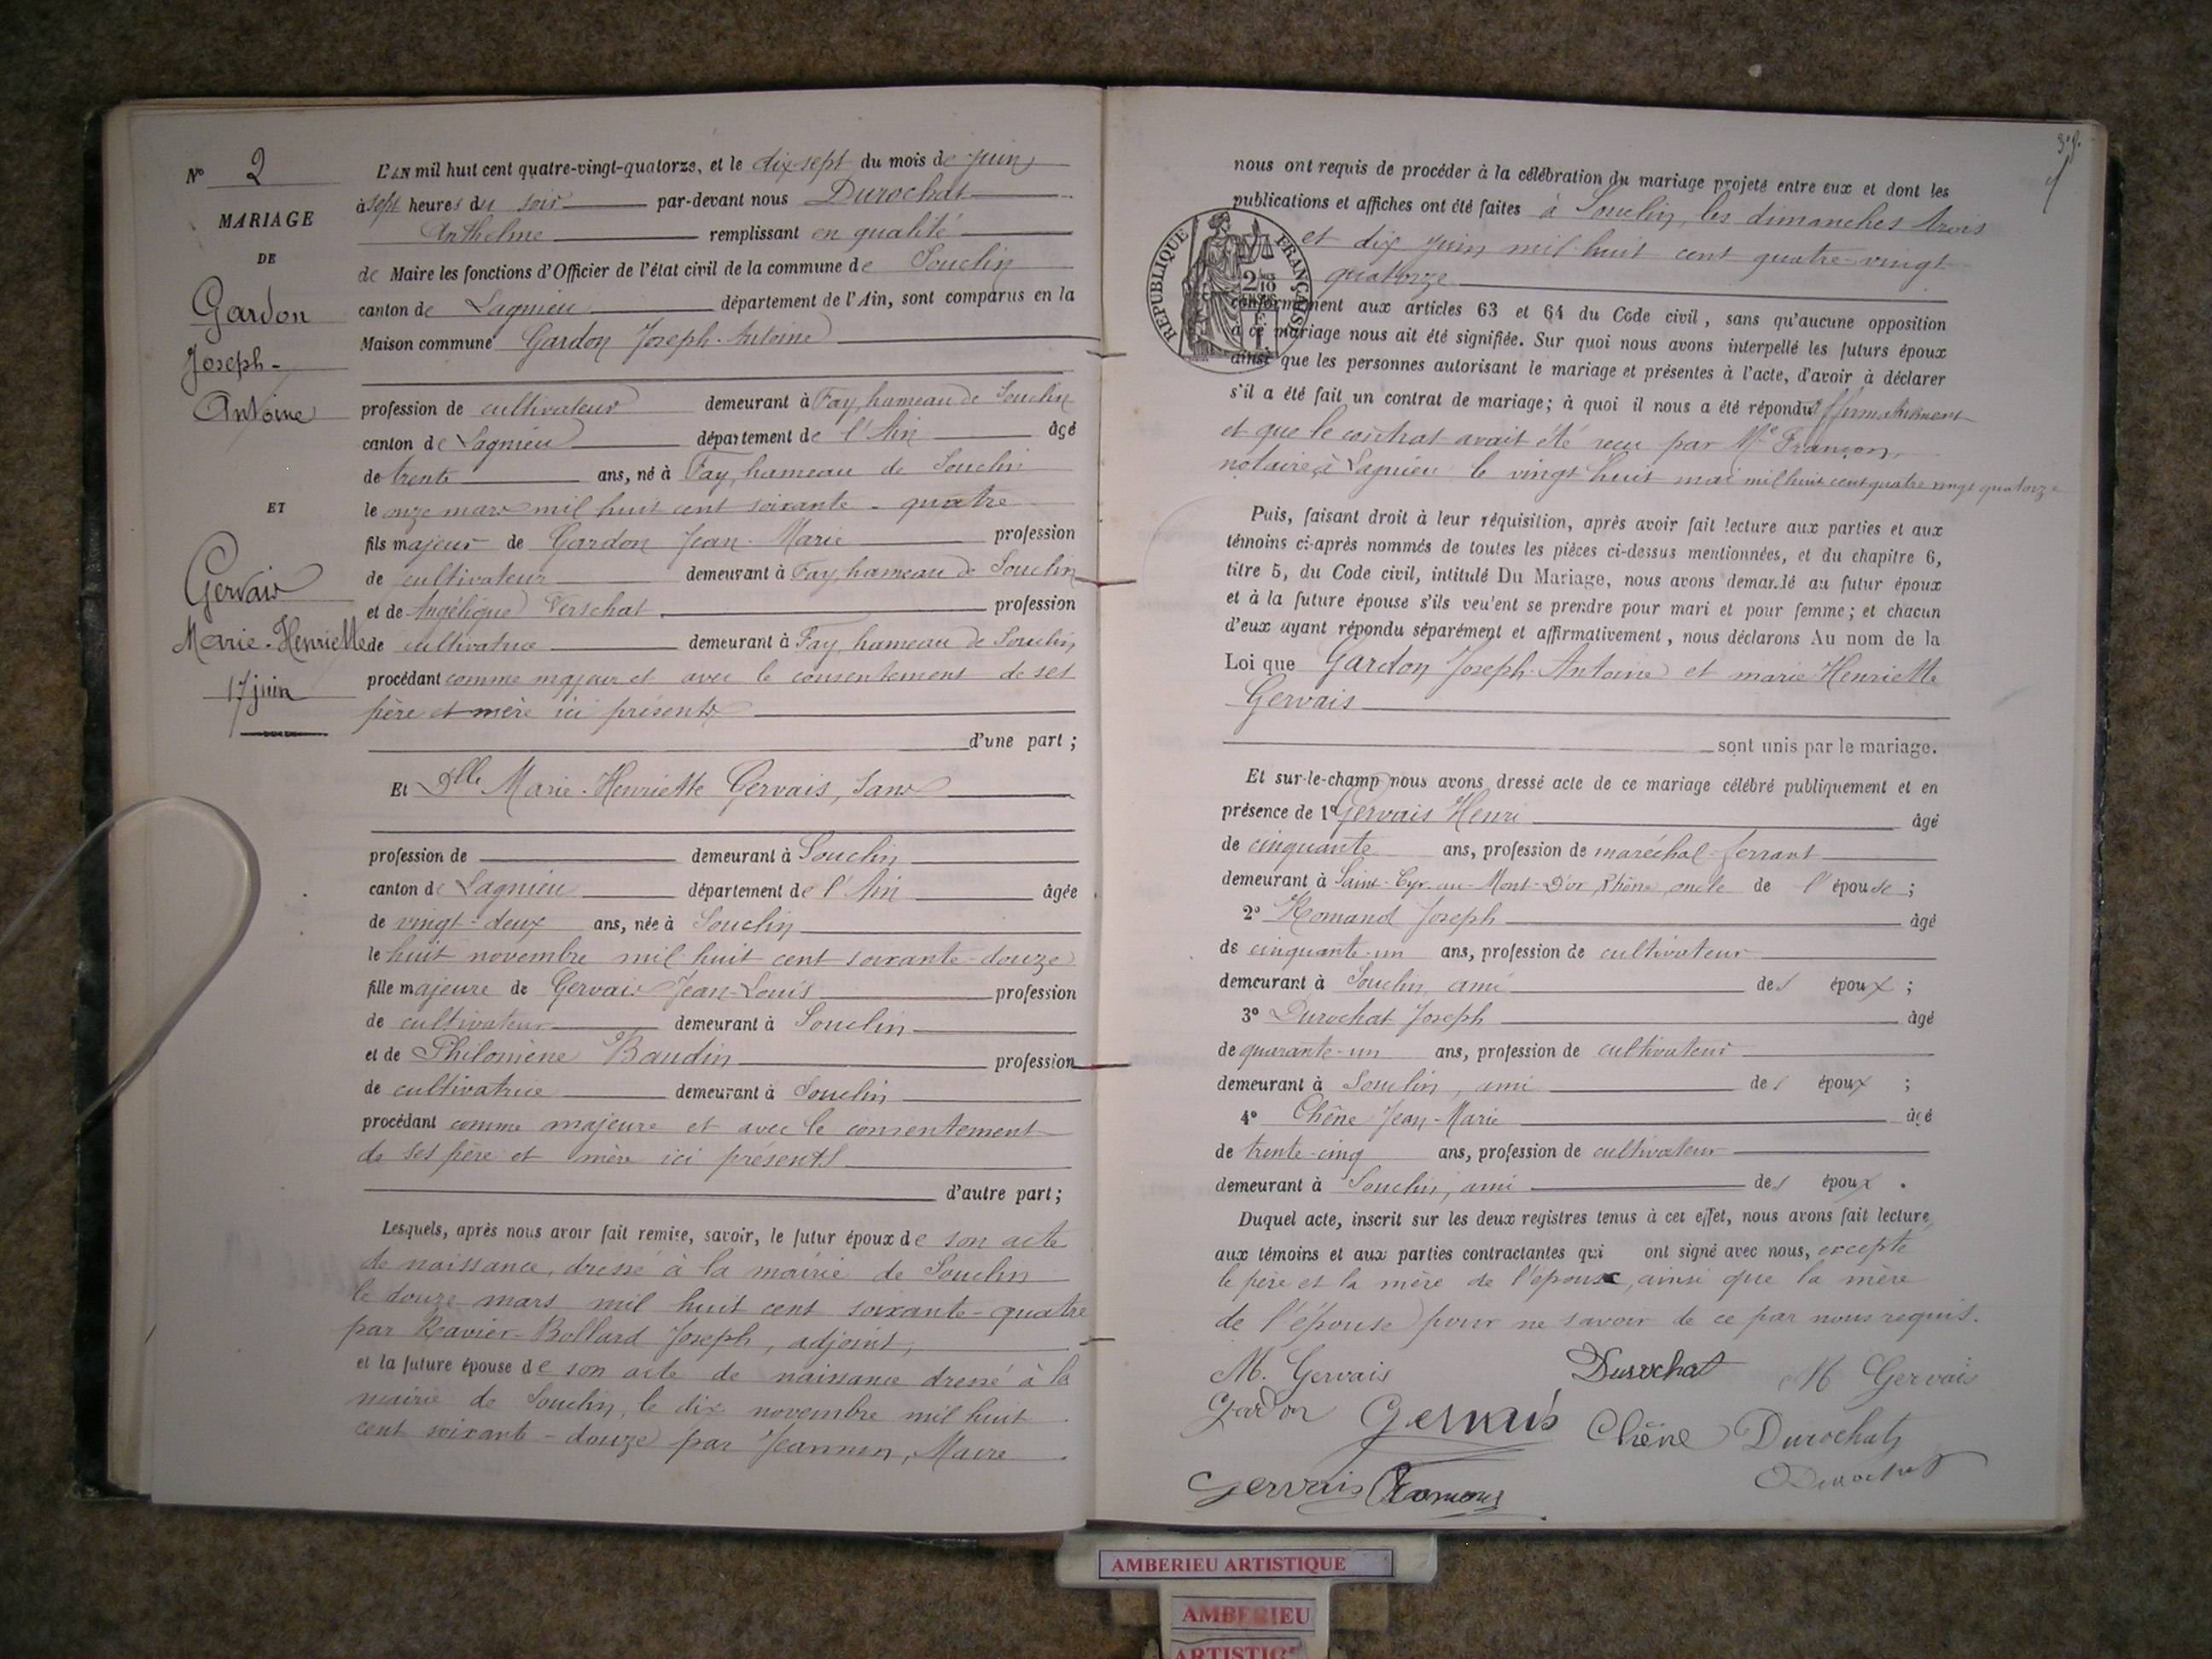 N° 2
MARIAGE
DE
Gardon
Joseph-
Antoine
ET
Gervais
Marie-Henriette
17 juin
L'AN mil huit cent quatre-vingt-quatorze, et le dix-sept du mois de juin
à sept heures du soir par-devant nous Durochat
Anthelme remplissant en qualité
de Maire les fonctions d'Officier de l'état civil de la commune de Souclin
canton de Lagnieu département de l'Ain, sont comparus en la
Maison commune Gardon Joseph-Antoine
profession de cultivateur demeurant à Fay, hameau de Souclin
canton de Lagnieu département de l'Ain âgé
de trente ans, né à Fay, hameau de Souclin
le onze mars mil huit cent soixante-quatre
fils majeur de Gardon Jean-Marie profession
de cultivateur demeurant à Fay, hameau de Souclin
et de Angélique Verschat profession
de cultivatrice demeurant à Fay, hameau de Souclin
procédant comme majeur et avec le consentement de ses
père et mère ici présents
d'une part ;
Et Dlle Marie-Henriette Gervais, sans
profession de demeurant à Souclin
canton de Lagnieu département de l'Ain âgée
de vingt-deux ans, née à Souclin
le huit novembre mil huit cent soixante-douze
fille majeure de Gervais Jean-Louis profession
de cultivateur demeurant à Souclin
et de Philomène Baudin profession
de cultivatrice demeurant à Souclin
procédant comme majeure et avec le consentement
de ses père et mère ici présents
d'autre part ;
Lesquels, après nous avoir fait remise, savoir, le futur époux de son acte
de naissance, dressé à la mairie de Souclin
le douze mars mil huit cent soixante-quatre
par Ravier-Bollard Joseph, adjoint,
et la future épouse de son acte de naissance dressé à la
mairie de Souclin, le dix novembre mil huit
cent soixante-douze par Jeannin, Maire
nous ont requis de procéder à la célébration du mariage projeté entre eux et dont les
publications et affiches ont été faites à Souclin, les dimanches trois
et dix juin mil huit cent quatre-vingt
quatorze
RÉPUBLIQUE FRANÇAISE
conformément aux articles 63 et 64 du Code civil, sans qu'aucune opposition
à ce mariage nous ait été signifiée. Sur quoi nous avons interpellé les futurs époux
ainsi que les personnes autorisant le mariage et présentes à l'acte, d'avoir à déclarer
s'il a été fait un contrat de mariage; à quoi il nous a été répondu affirmativement
et que le contrat avait été reçu par Me Françon,
notaire à Lagnieu le vingt huit mai mil huit cent quatre vingt quatorze
Puis, faisant droit à leur réquisition, après avoir fait lecture aux parties et aux
témoins ci-après nommés de toutes les pièces ci-dessus mentionnées, et du chapitre 6,
titre 5, du Code civil, intitulé Du Mariage, nous avons demandé au futur époux
et à la future épouse s'ils veulent se prendre pour mari et pour femme; et chacun
d'eux ayant répondu séparément et affirmativement, nous déclarons Au nom de la
Loi que Gardon Joseph-Antoine et marie-Henriette
Gervais
sont unis par le mariage.
Et sur-le-champ nous avons dressé acte de ce mariage célébré publiquement et en
présence de 1° Gervais Henri âgé
de cinquante ans, profession de maréchal-ferrant
demeurant à Saint-Cyr-au-Mont-D'or, Rhône, oncle de l'épouse ;
2° Romand Joseph âgé
de cinquante-un ans, profession de cultivateur
demeurant à Souclin, ami des époux ;
3° Durochat Joseph âgé
de quarante-un ans, profession de cultivateur
demeurant à Souclin, ami des époux ;
4° Chêne Jean-Marie âgé
de trente-cinq ans, profession de cultivateur
demeurant à Souclin, ami des époux .
Duquel acte, inscrit sur les deux registres tenus à cet effet, nous avons fait lecture
aux témoins et aux parties contractantes qui ont signé avec nous, excepté
le père et la mère de l'époux, ainsi que la mère
de l'épouse pour ne savoir de ce par nous requis.
M. Gervais Durochat M Gervais
Gardon Gervais Chêne Durochat
Gervais Romand Durochat
AMBERIEU ARTISTIQUE
AMBERIEU
ARTISTIQUE